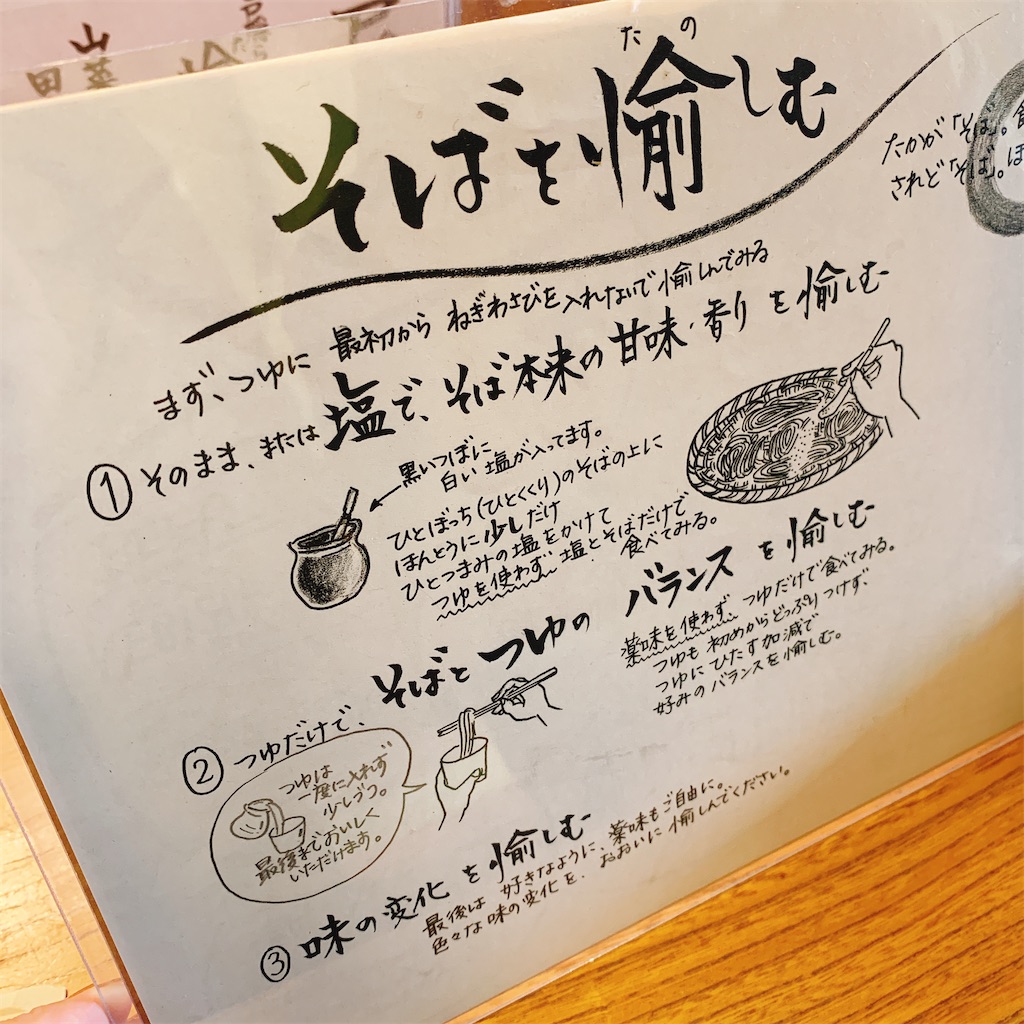 山菜
田
そばを愉しむ
たの
たかが「そば」。
されど「そば」。ほ
まず、つゆに 最初から ねぎわさびを入れないで愉しんでみる
① そのまま、または塩で、そば本来の甘味・香りを愉しむ
黒いつぼに
白い塩が入ってます。
ひとぼっち(ひとくくり)のそばの上に
ほんとうに少しだけ
ひとつまみの塩をかけて
つゆを使わず 塩とそばだけで
食べてみる。
② つゆだけで、そばとつゆの バランスを愉しむ
薬味を使わず つゆだけで食べてみる。
つゆも 初めからどっぷりつけず
つゆにひたす加減で
好みのバランスを愉しむ。
つゆは
一度に入れず
少しづつ。
最後までおいしく
いただけます。
③ 味の変化を愉しむ
最後は 好きなように、薬味もご自由に。
色々な味の変化を、おおいに愉しんでください。